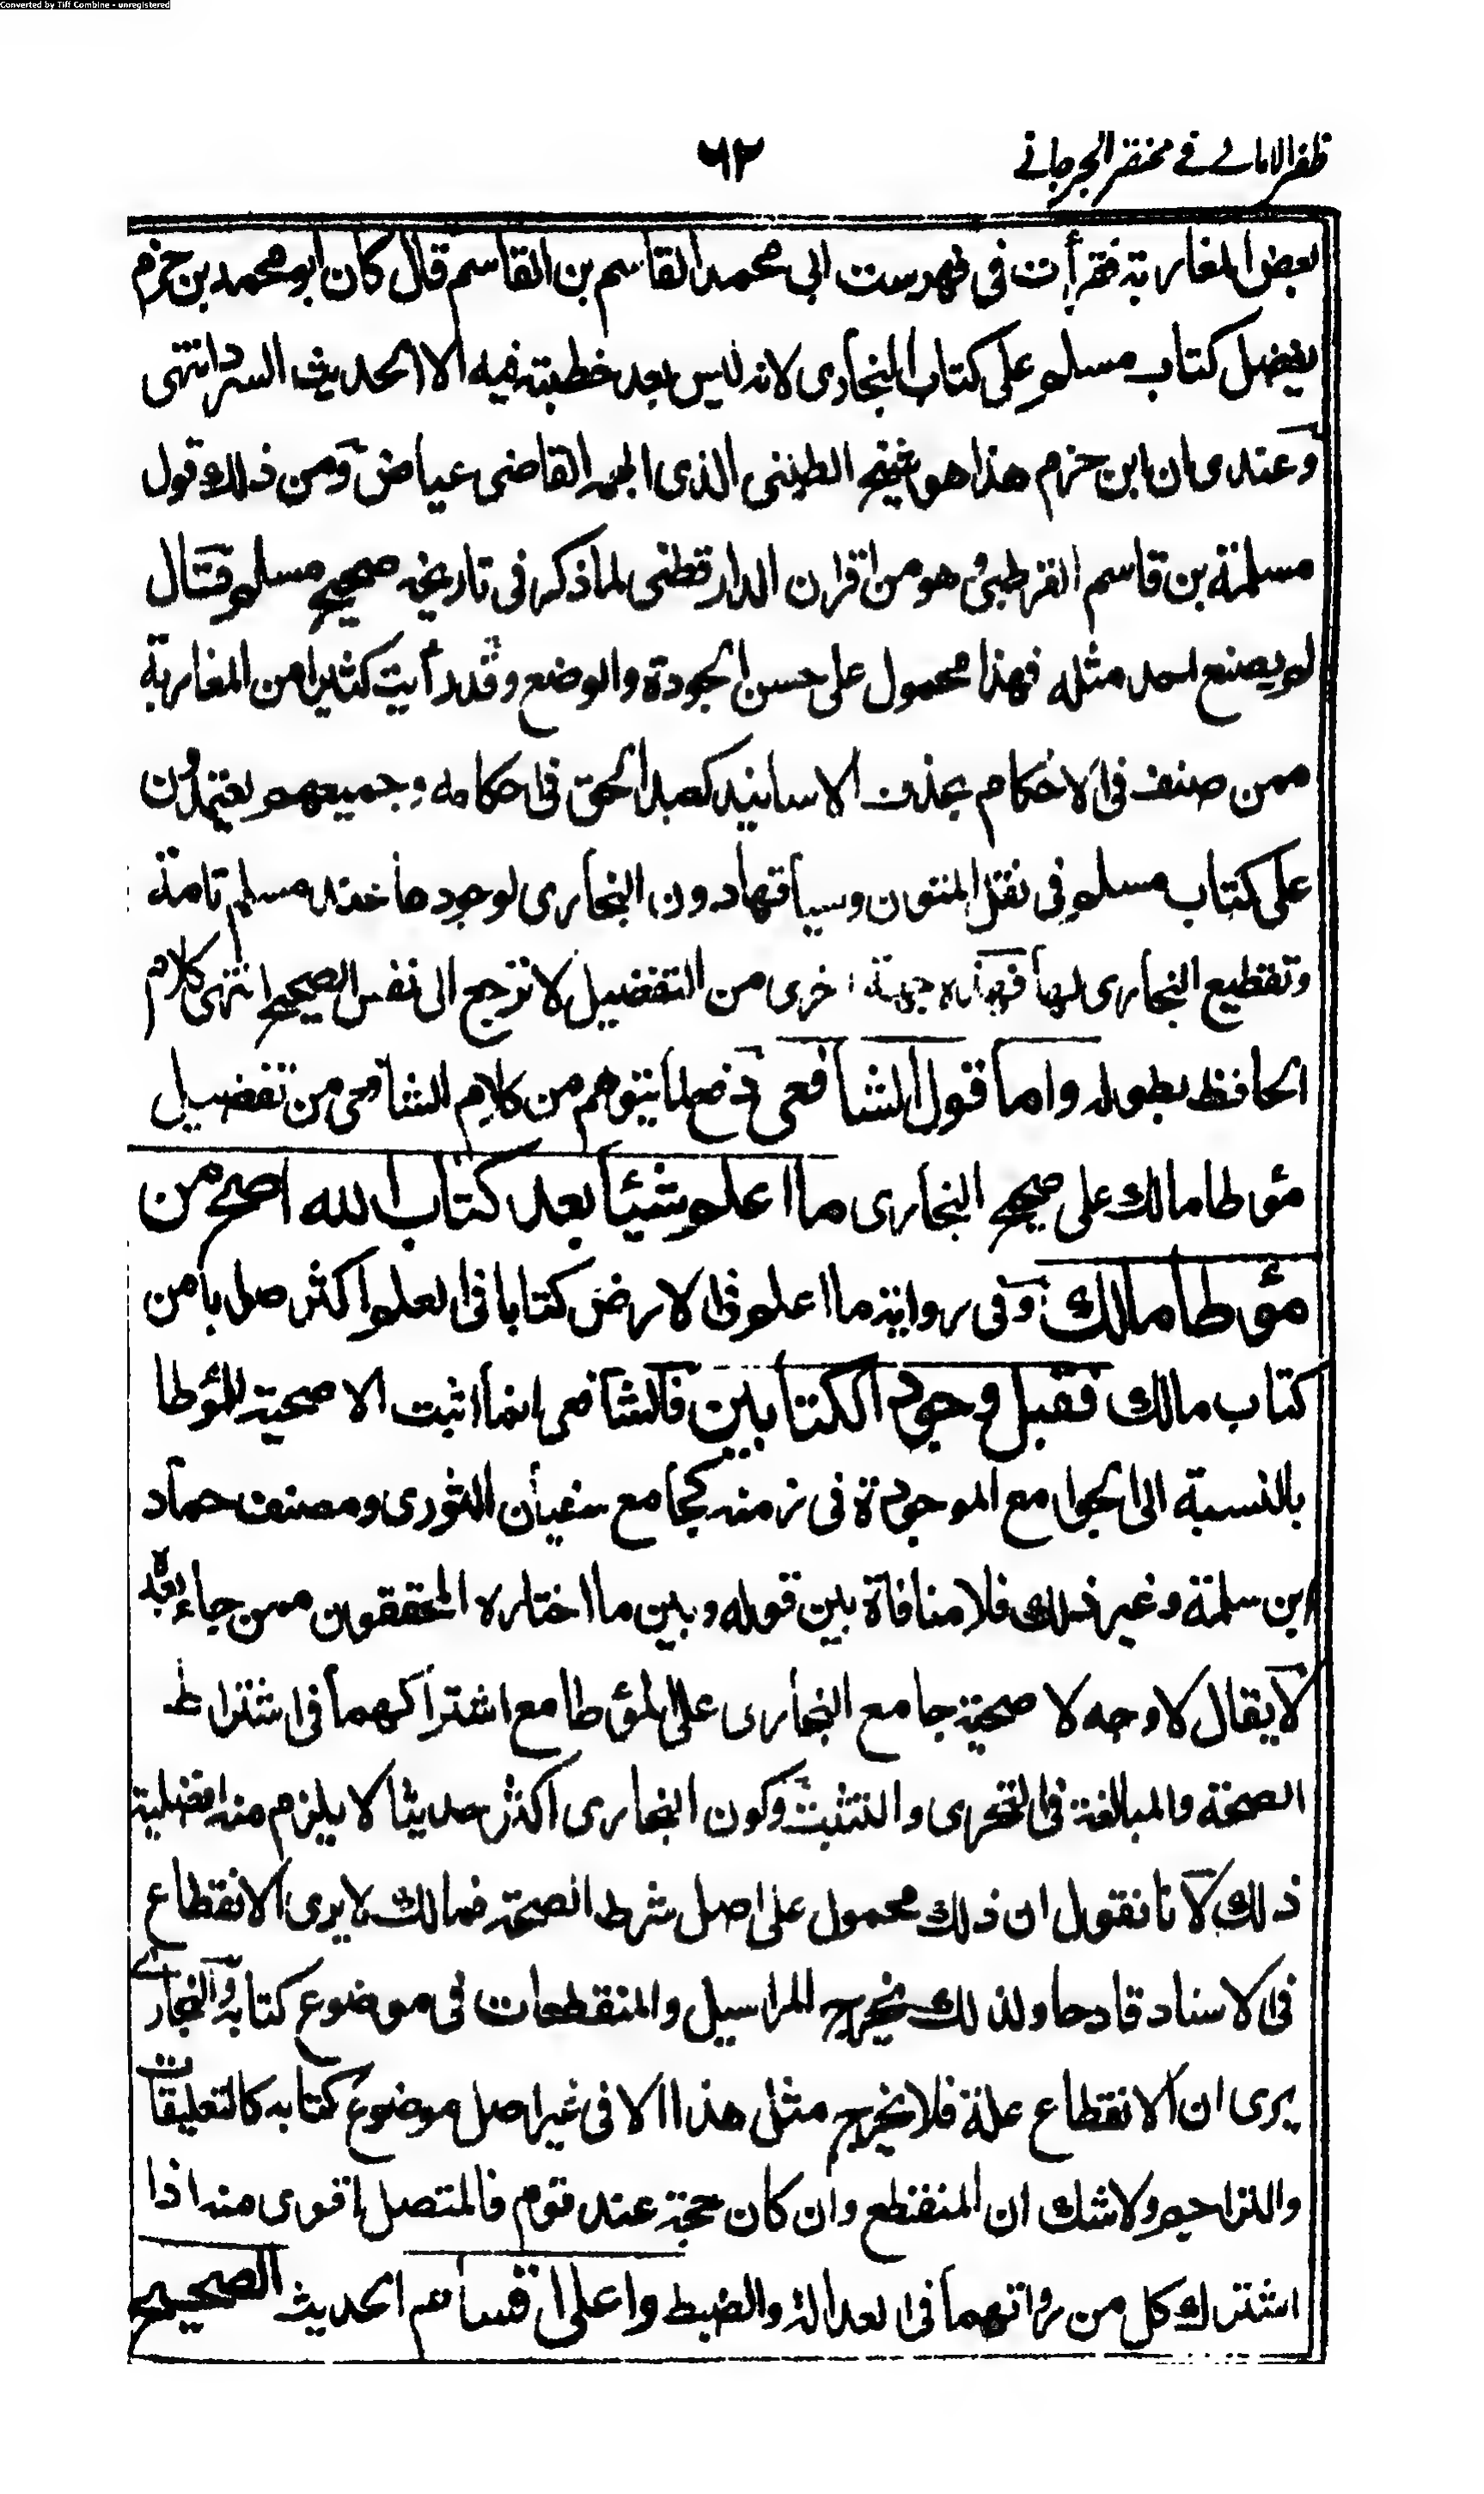 Converted by Tiff Combine - unregistered
ظفر الامانے فے مختصر الجرجانے
٦٢
بعض المغاربة فقرأت فى فهرست ابى محمد القاسم بن القاسم قال كان ابو محمد بن حزم
يفضل كتاب مسلم على كتاب البخارى لانه ليس بعد خطبته فيه الا الحديث السرد انتهى
وعندى ان ابن حزم هذا هو شيخ الذى القاضى عياض ومن ذلك قول
مسلمة بن قاسم القرطبى وهو من اقران الدارقطنى لما ذكر فى تاريخه صحيح مسلم فقال
لم يصنع احد مثله فهذا محمول على حسن الجودة والوضع وقد رأيت كثيرا من المغاربة
ممن صنف فى الاحكام بحذف الاسانيد كعبد الحق فى احكامه وجميعهم يعتمدون
على كتاب مسلم فى نقل المتون وسياقها دون البخارى لوجودها عند مسلم تامة
وتقطيع البخارى لها فهذه جهة اخرى من التفضيل لا ترجع الى نفس الصحيح انتهى كلام
الحافظ بطوله واما قول الشافعى دفع لما يتوهم من كلام الشافعى من تفضيل
مؤطا مالك على صحيح البخارى ما اعلم شيئا بعد كتاب الله اصح من
مؤطا مالك وفى رواية ما اعلم فى الارض كتابا فى العلم اكثر صوابا من
كتاب مالك فقبل وجود الكتابين فالشافعى انما اثبت الاصحية للمؤطا
بالنسبة الى الجوامع الموجودة فى زمنه كجامع سفيان الثورى ومصنف حماد
ابن سلمة وغير ذلك فلا منافاة بين قوله وبين ما اختاره المحققون ممن جاء بعده
لا يقال لا وجه لاصحية جامع البخارى على المؤطا مع اشتراكهما فى اشتراط
الصحة والمبالغة فى التحرى والتثبت وكون البخارى اكثر حديثا لا يلزم منه افضلية
ذلك لانا نقول ان ذلك محمول على اصل شرط الصحة فمالك لا يرى الانقطاع
فى الاسناد قادحا ولذلك يخرج المراسيل والمنقطعات فى موضوع كتابه والبخارے
يرى ان الانقطاع علة فلا يخرج مثل هذا الا فى غير اصل موضوع كتابه كالتعليقات
والتراجم ولا شك ان المنقطع وان كان حجة عند قوم فالمتصل اقوى منه اذا
اشترك كل من رواتهما فى العدالة والضبط واعلى اقسام الحديث الصحيح